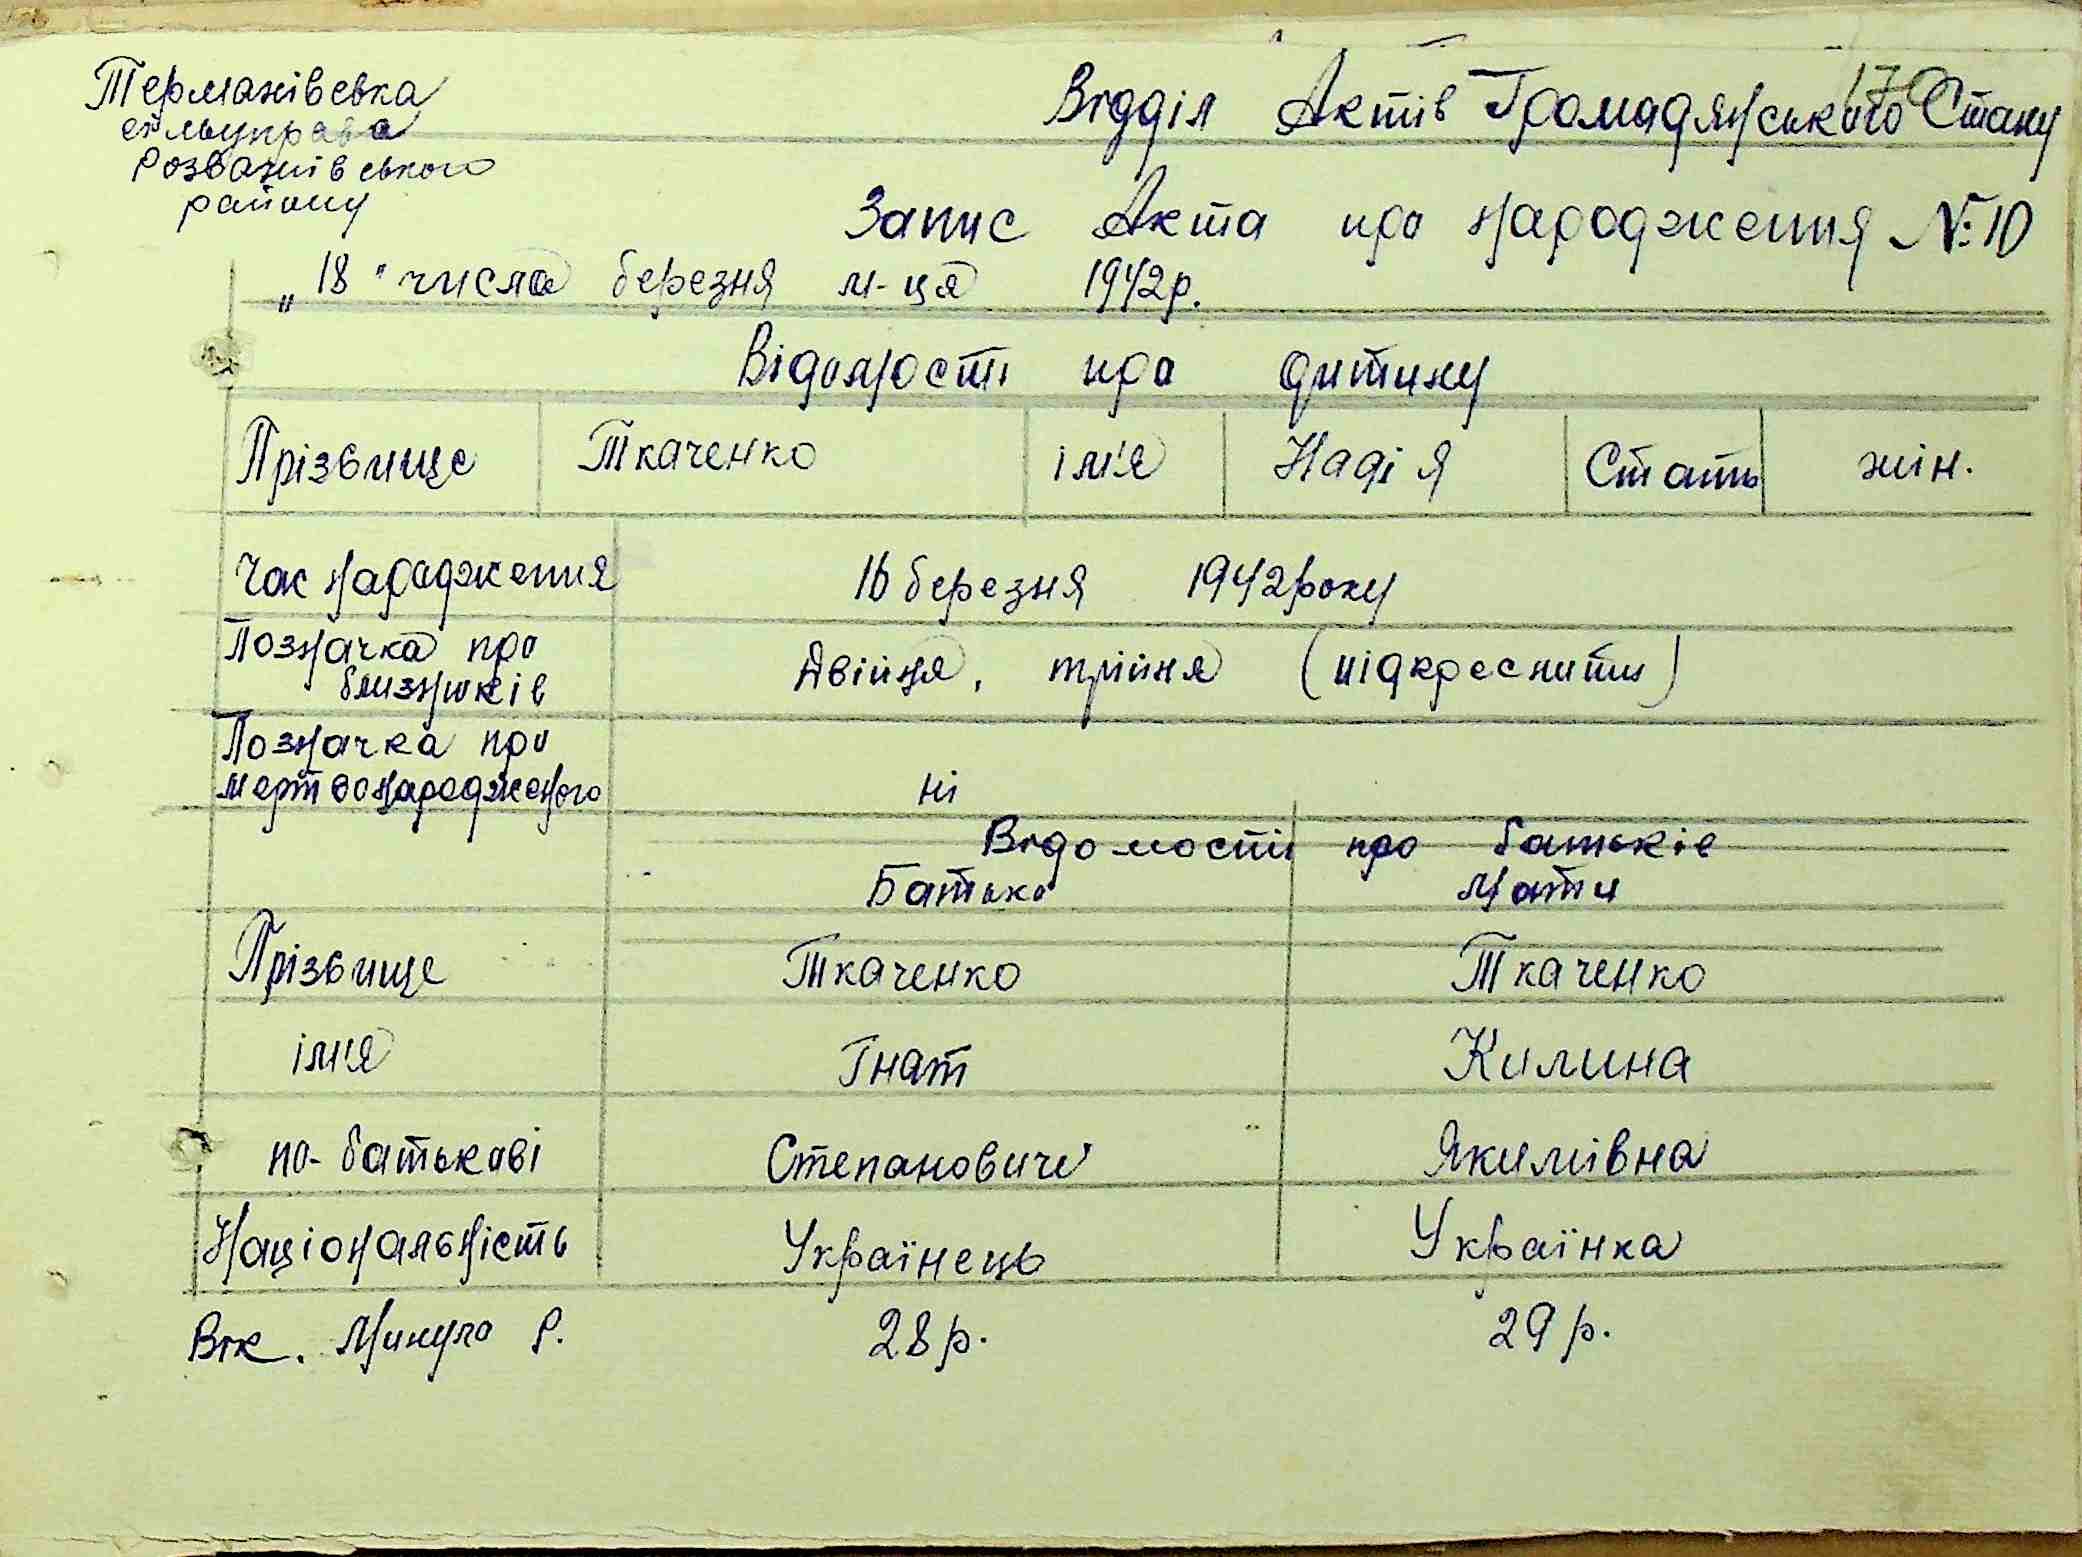 Термахівська
сільуправа
Розважівського
району
170
Відділ Актів Громадянського Стану
Запис Акта про народження № 10
„18" числа березня м-ця 1942р.
Відомости про дитину
Прізвище Ткаченко ім'я Надія Стать жін.
Час народження 16 березня 1942 року
Позначка про близнюків Двійня, трійня (підкреслити)
Позначка про мертвонародженого ні
Відомости про батьків
Батько Мати
Прізвище Ткаченко Ткаченко
ім'я Гнат Килина
по-батькові Степанович Якимівна
Національність Українець Українка
Вік. Минуло р. 28 р. 29 р.